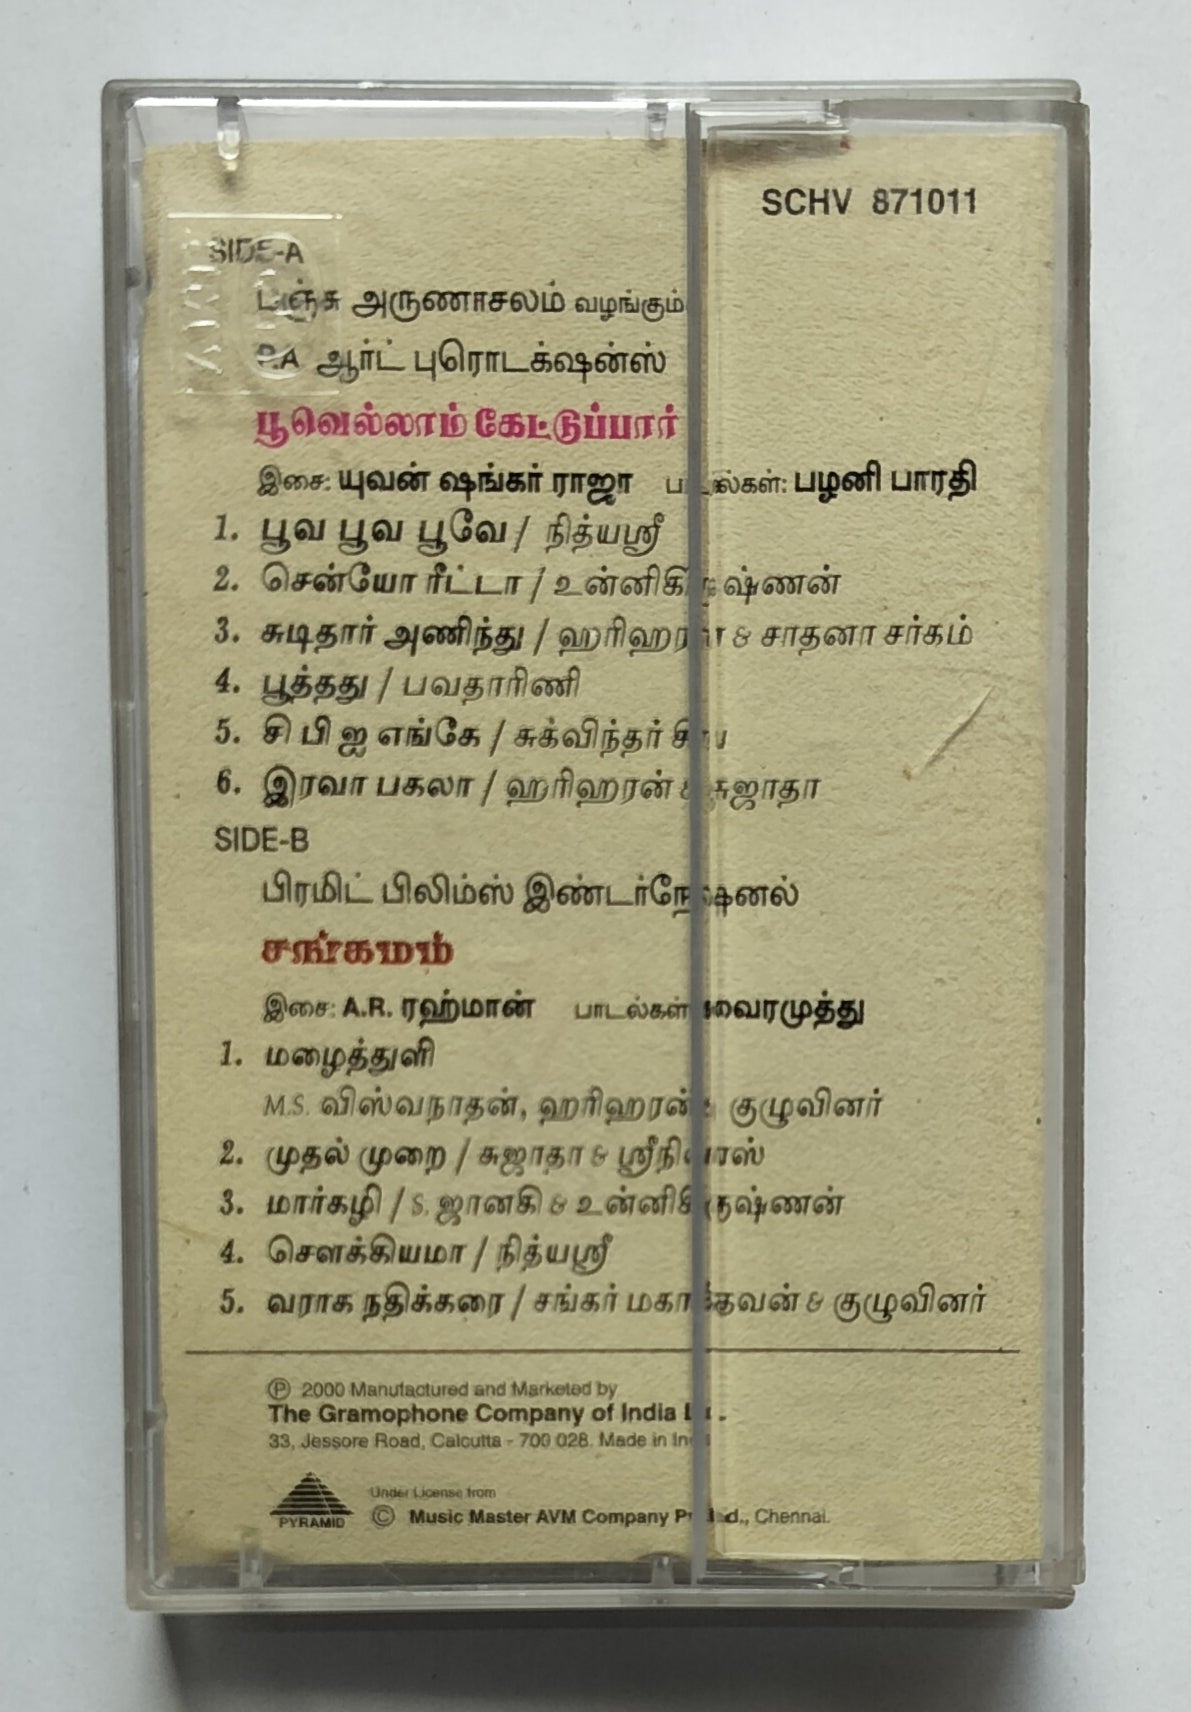 SCHV 871011
SIDE-A
பஞ்சு அருணாசலம் வழங்கும்
P.A ஆர்ட் புரொடக்ஷன்ஸ்
பூவெல்லாம் கேட்டுப்பார்
இசை: யுவன் ஷங்கர் ராஜா பாடல்கள்: பழனி பாரதி
1. பூவ பூவ பூவே / நித்யஸ்ரீ
2. சென்யோ ரீட்டா / உன்னிகிருஷ்ணன்
3. சுடிதார் அணிந்து / ஹரிஹரன் & சாதனா சர்கம்
4. பூத்தது / பவதாரிணி
5. சி பி ஐ எங்கே / சுக்விந்தர்
6. இரவா பகலா / ஹரிஹரன் & சுஜாதா
SIDE-B
பிரமிட் பிலிம்ஸ் இண்டர்நேஷனல்
சங்கமம்
இசை: A.R. ரஹ்மான் பாடல்கள்: வைரமுத்து
1. மழைத்துளி
M.S. விஸ்வநாதன், ஹரிஹரன் & குழுவினர்
2. முதல் முறை / சுஜாதா & ஸ்ரீநிவாஸ்
3. மார்கழி / S. ஜானகி & உன்னிகிருஷ்ணன்
4. சௌக்கியமா / நித்யஸ்ரீ
5. வராக நதிக்கரை / சங்கர் மகாதேவன் & குழுவினர்
Ⓟ 2000 Manufactured and Marketed by
The Gramophone Company of India Ltd.
33, Jessore Road, Calcutta - 700 028. Made in India
Under License from
PYRAMID © Music Master AVM Company Pvt. Ltd., Chennai.